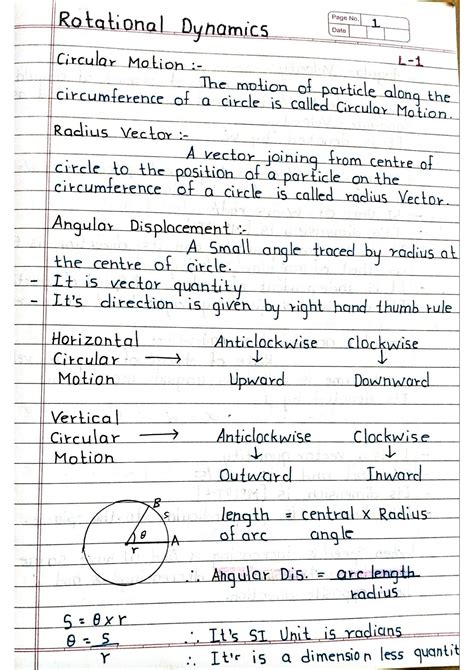 Rotational Dynamics
Page No. 1
Date
L-1
Circular Motion :-
The motion of particle along the
circumference of a circle is called Circular Motion.
Radius Vector :-
A vector joining from centre of
circle to the position of a particle on the
circumference of a circle is called radius Vector.
Angular Displacement :-
A Small angle traced by radius at
the centre of circle.
- It is vector quantity
- It's direction is given by right hand thumb rule
Horizontal Anticlockwise Clockwise
Circular → ↓ ↓
Motion Upward Downward
Vertical
Circular → Anticlockwise Clockwise
Motion ↓ ↓
Outward Inward
B
S
θ A
r
length = central x Radius
of arc angle
∴ Angular Dis. = arc length
radius
S = θ x r
θ = S
r
∴ It's SI Unit is radians
∴ It'r is a dimension less quantit